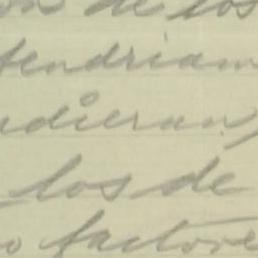 de los
tendriam
udieran,
los de
o factore